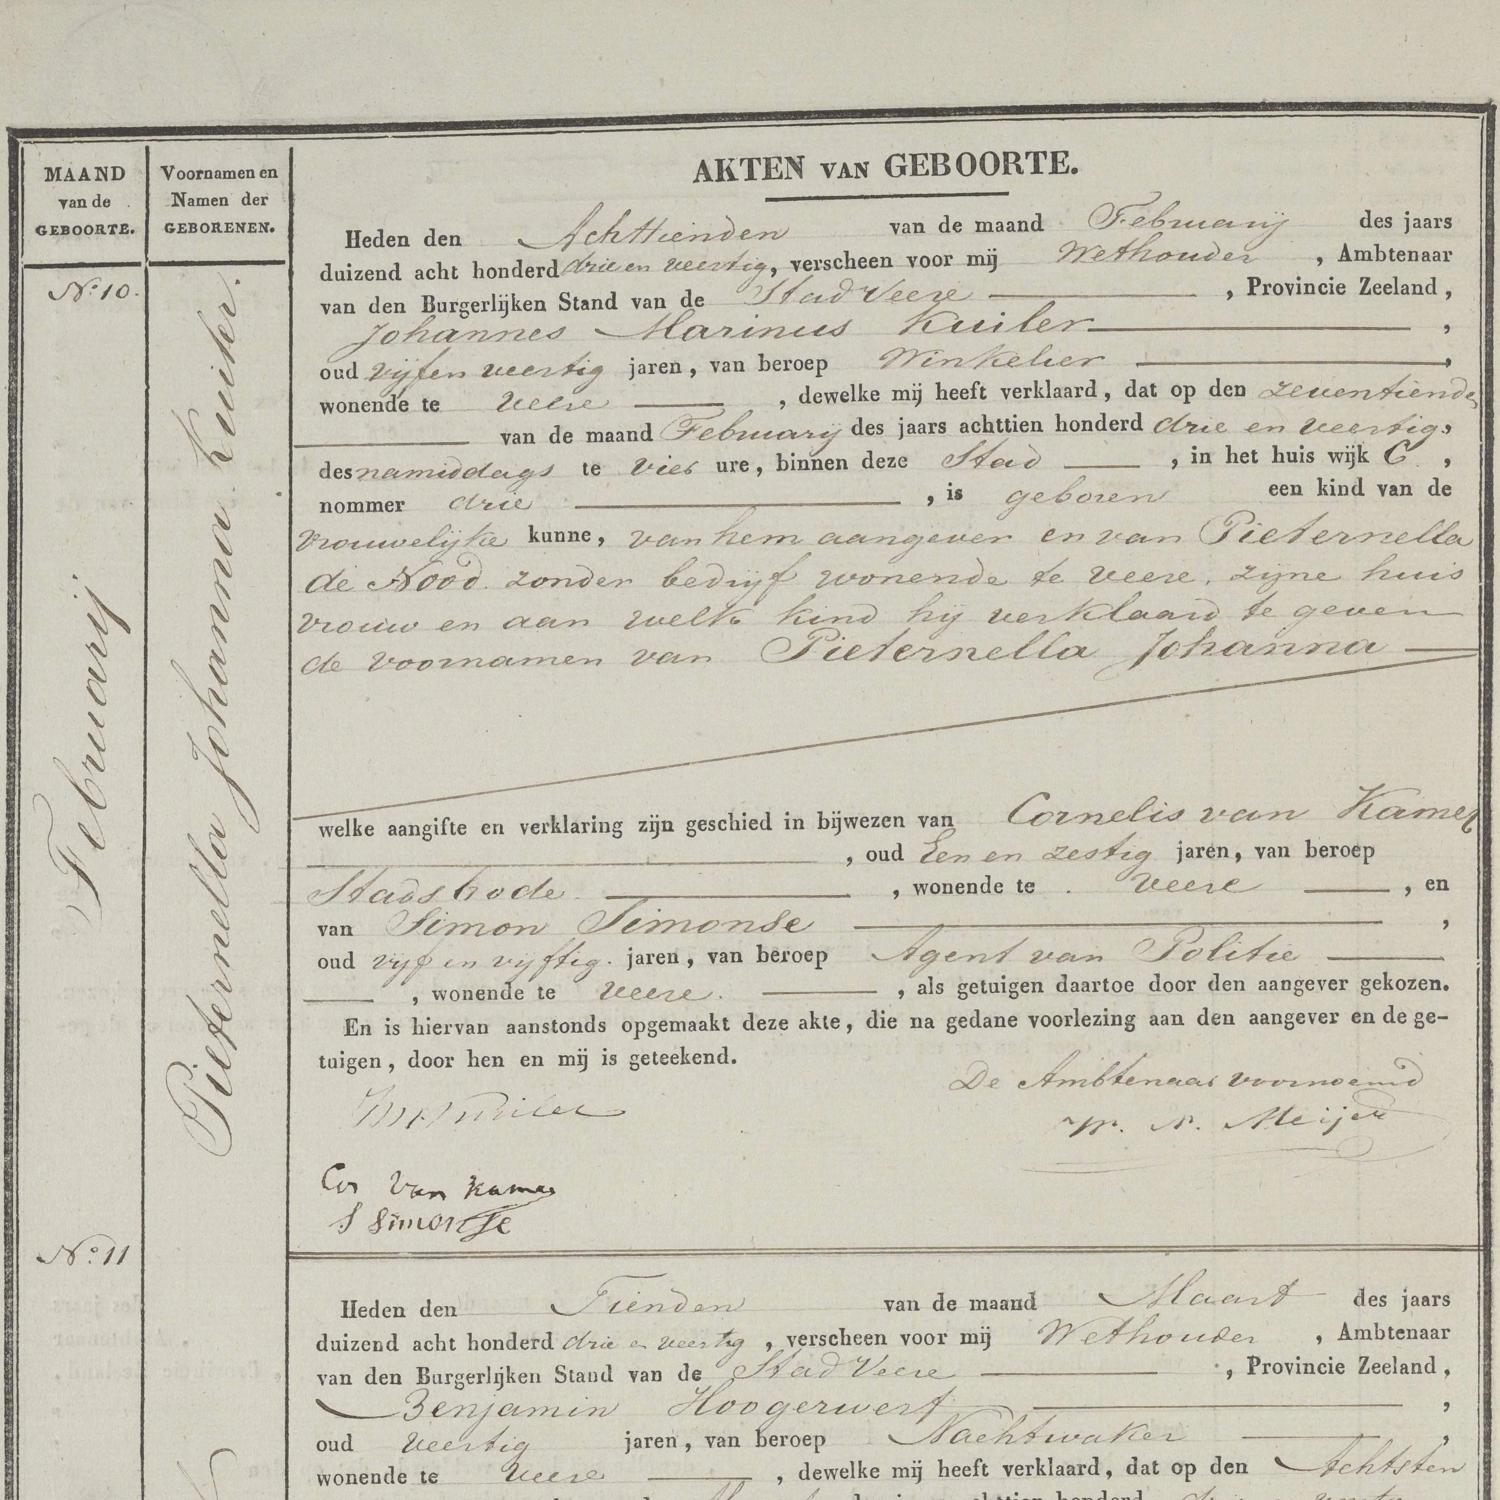 AKTEN VAN GEBOORTE.
MAAND
van de
GEBOORTE.
Voornamen en
Namen der
GEBORENEN.
No. 10.
Februarij
Pieternella Johanna Kuiler.
Heden den Achttienden van de maand Februarij des jaars
duizend acht honderd drie en veertig, verscheen voor mij Wethouder, Ambtenaar
van den Burgerlijken Stand van de Stad Veere, Provincie Zeeland,
Johannes Marinus Kuiler,
oud vijf en veertig jaren, van beroep Winkelier,
wonende te Veere, dewelke mij heeft verklaard, dat op den zeventiende
van de maand Februarij des jaars achttien honderd drie en veertig,
des namiddags te vier ure, binnen deze Stad, in het huis wijk C.,
nommer drie, is geboren een kind van de
vrouwelijke kunne, van hem aangever en van Pieternella
de Nood. zonder bedrijf wonende te Veere, zijne huis
vrouw en aan welk kind hij verklaard te geven
de voornamen van Pieternella Johanna
welke aangifte en verklaring zijn geschied in bijwezen van Cornelis van Kamer
, oud Een en zestig jaren, van beroep
Stadsbode, wonende te Veere, en
van Simon Simonse,
oud vijf en vijftig. jaren, van beroep Agent van Politie
, wonende te Veere., als getuigen daartoe door den aangever gekozen.
En is hiervan aanstonds opgemaakt deze akte, die na gedane voorlezing aan den aangever en de ge-
tuigen, door hen en mij is geteekend.
De Ambtenaar voornoemd
Meijer
Kuiler
Cor Van Kamer
S Simonse
No. 11
Heden den Tienden van de maand Maart des jaars
duizend acht honderd drie en veertig, verscheen voor mij Wethouder, Ambtenaar
van den Burgerlijken Stand van de Stad Veere, Provincie Zeeland,
Benjamin Hoogerwerf,
oud veertig jaren, van beroep Nachtwaker,
wonende te Veere, dewelke mij heeft verklaard, dat op den Achtsten